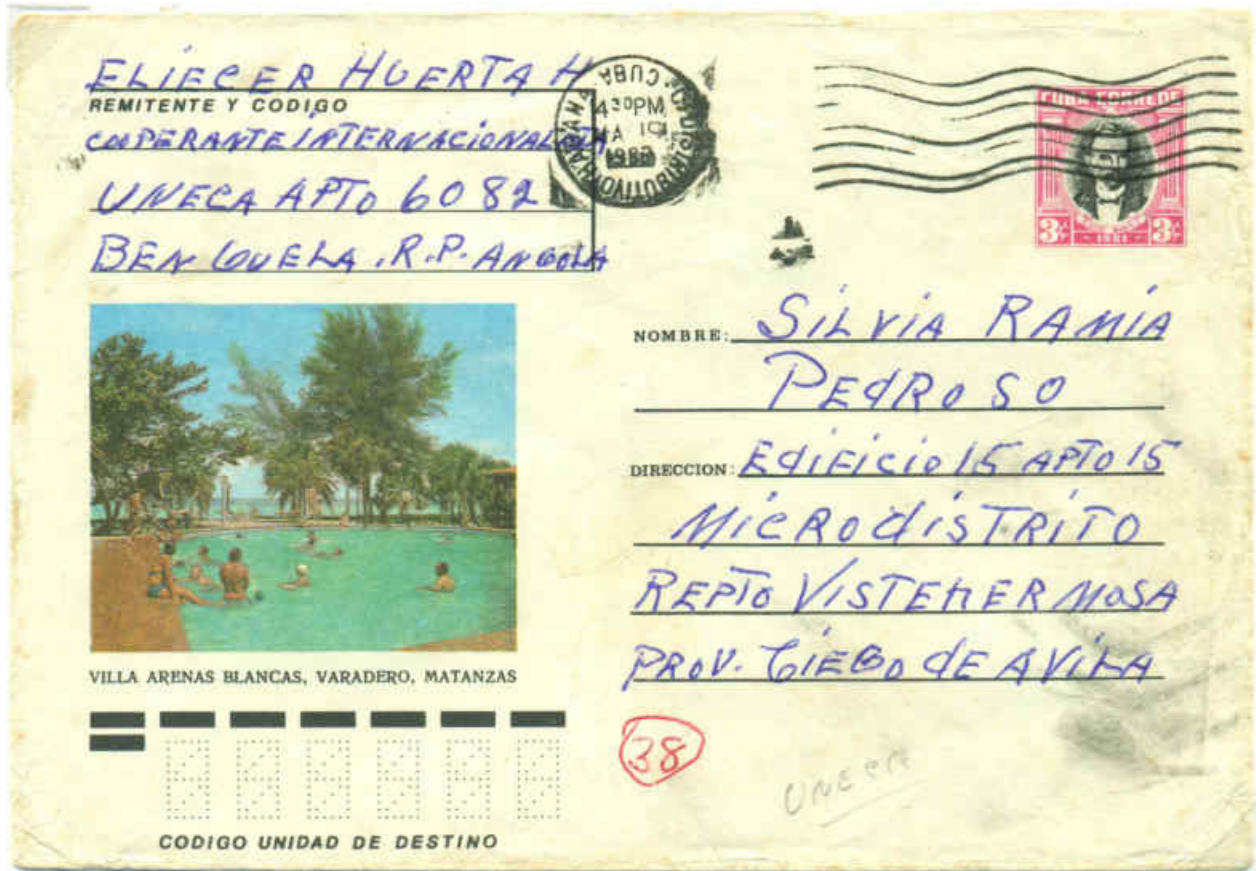 ELIECER HUERTA H
REMITENTE Y CODIGO
COOPERANTE INTERNACIONALISTA
UNECA APTO 6082
BENGUELA. R.P. ANGOLA
CUBA
4 30PM
CUBA CORREOS
3¢ 1981 3¢
NOMBRE: SILVIA RAMIA
PEDROSO
DIRECCION: EdiFicio 15 APTO 15
MICROdiSTRITO
REPTO VISTEHERMOSA
PROV. CIEGO dE AVILA
VILLA ARENAS BLANCAS, VARADERO, MATANZAS
38
UNECA
CODIGO UNIDAD DE DESTINO